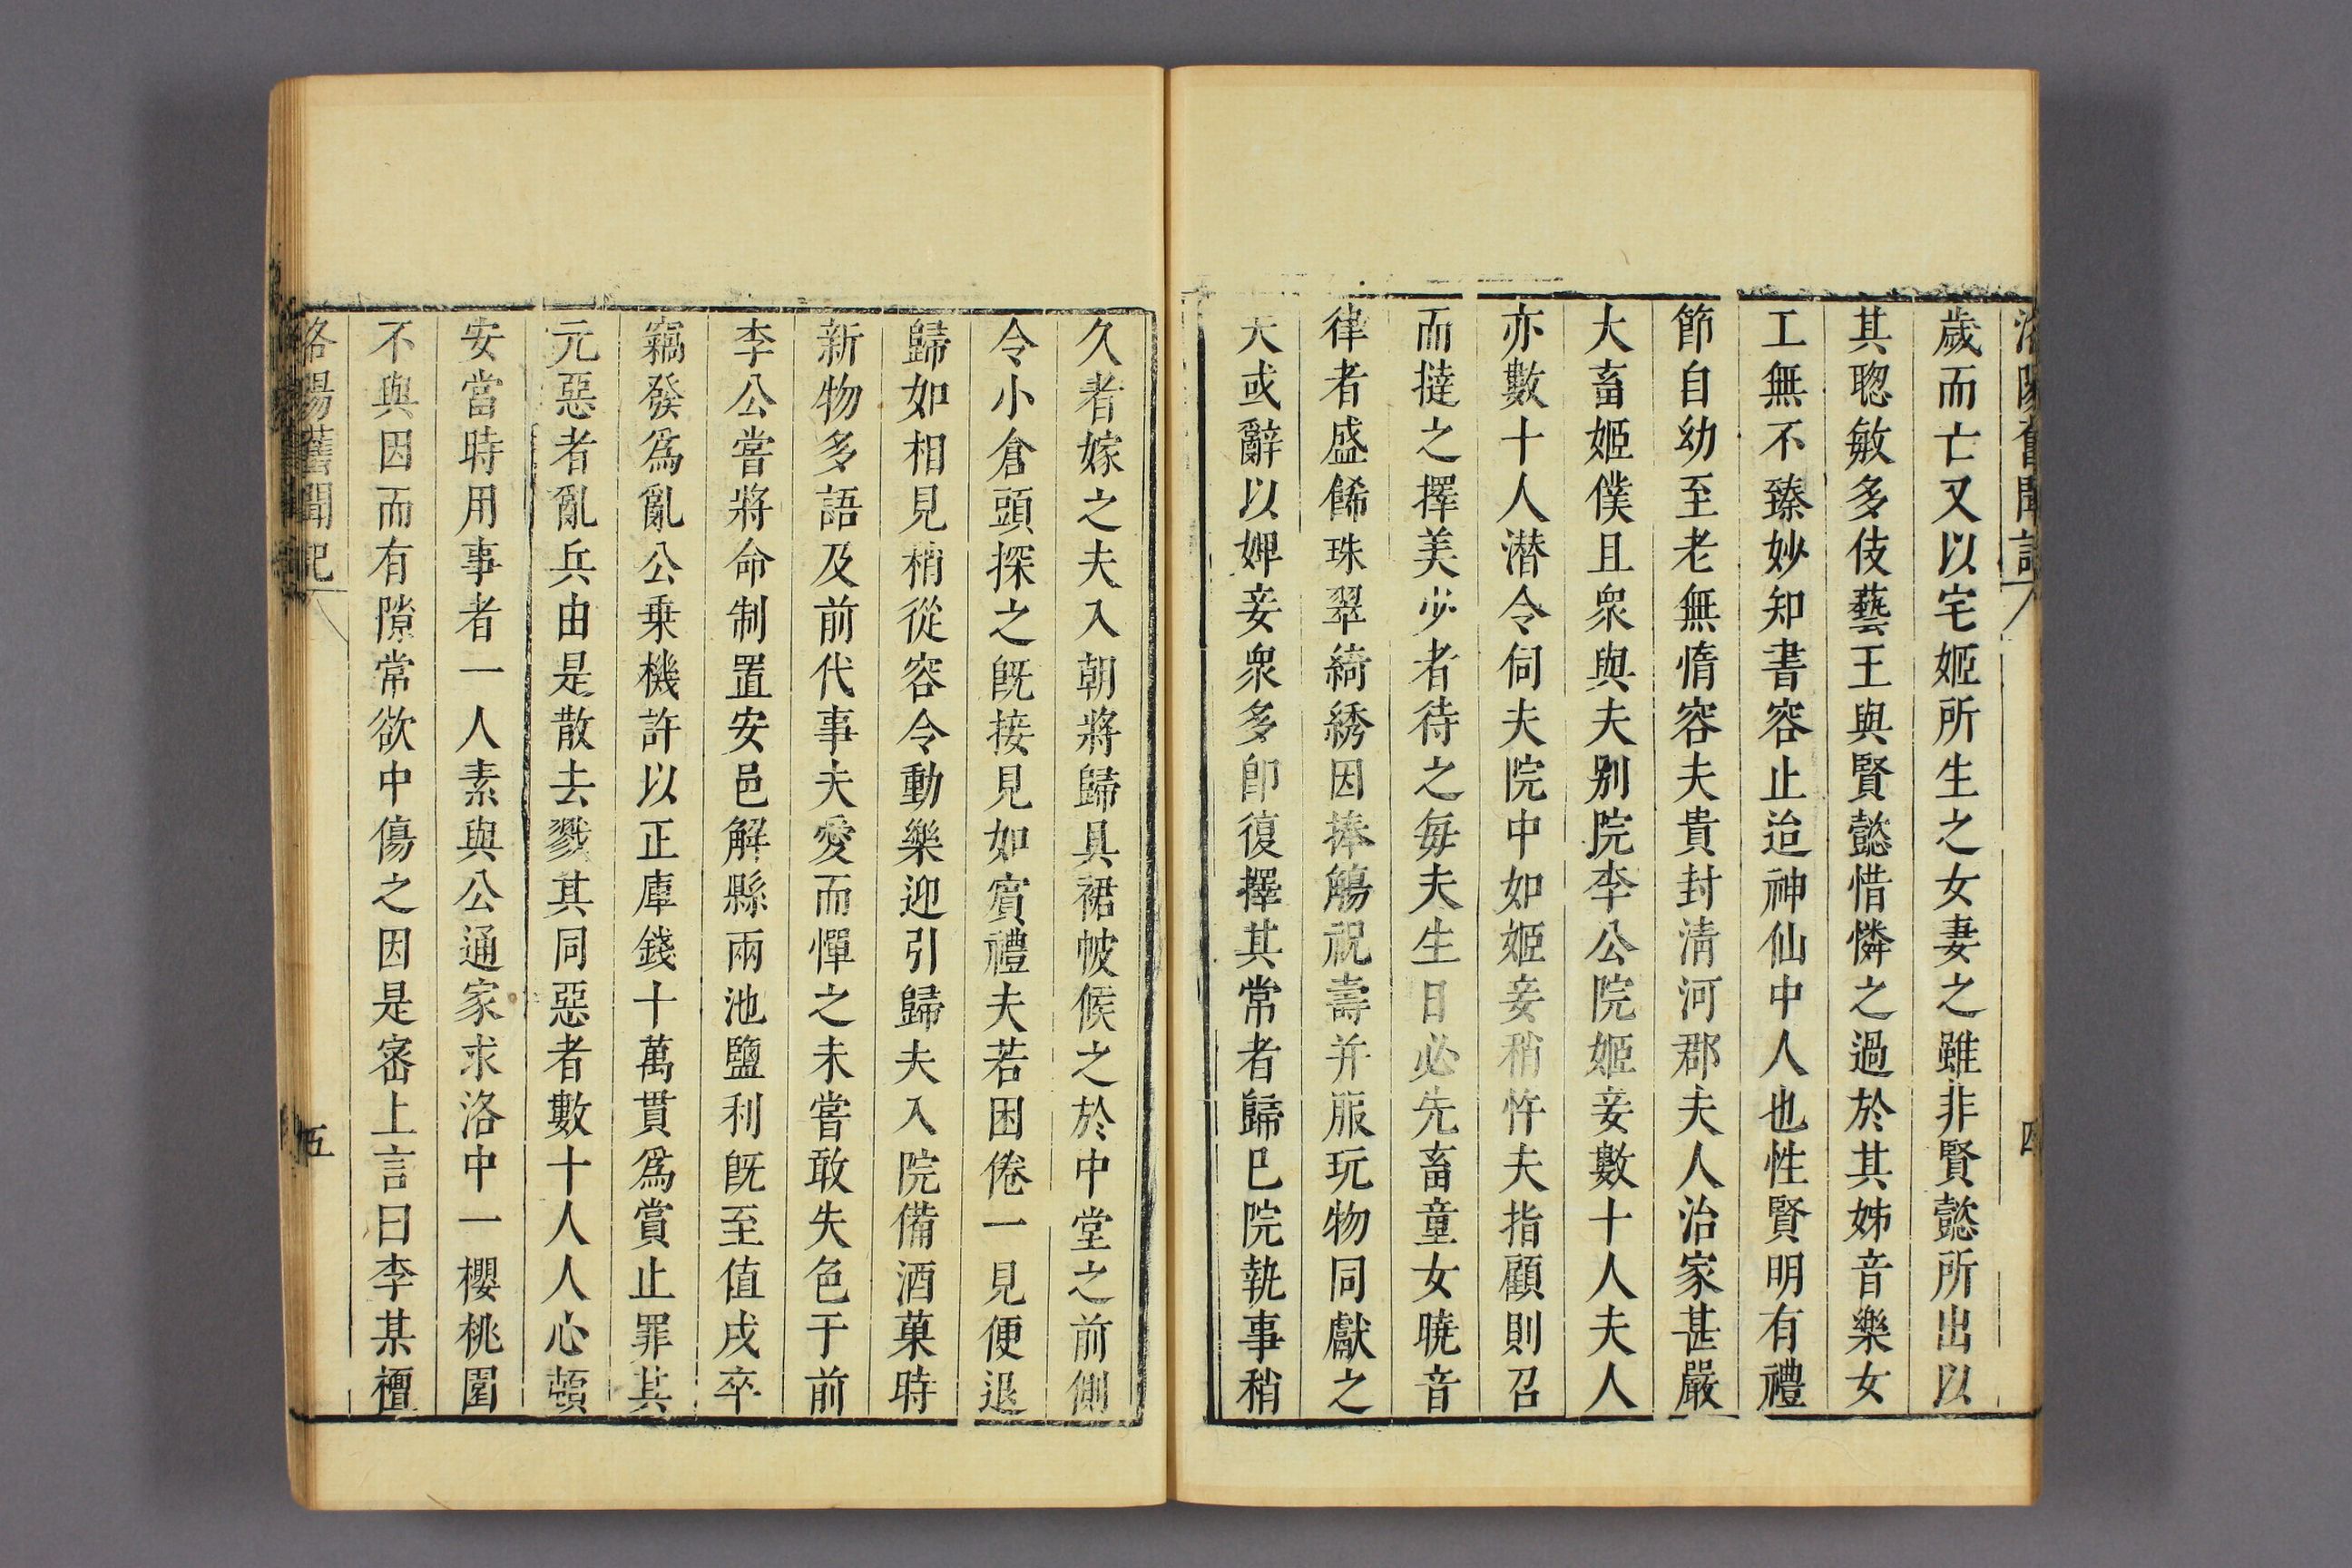 洛陽舊聞記
四
歲而亡又以宅姬所生之女妻之雖非賢懿所出以
其聦敏多伎藝王與賢懿惜憐之過於其姊音樂女
工無不臻妙知書容止迨神仙中人也性賢明有禮
節自幼至老無惰容夫貴封清河郡夫人治家甚嚴
大畜姬僕且衆與夫别院李公院姬妾數十人夫人
亦數十人潜令伺夫院中如姬妾稍忤夫指顧則召
而撻之擇美少者待之每夫生日必先畜童女曉音
律者盛餙珠翠綺綉因捧觴祝壽并服玩物同獻之
夫或辭以婢妾衆多卽復擇其常者歸巳院執事稍
久者嫁之夫入朝將歸具裙帔候之於中堂之前側
令小倉頭探之旣接見如賓禮夫若困倦一見便退
歸如相見稍從容令動樂迎引歸夫入院備酒菓時
新物多語及前代事夫愛而憚之未嘗敢失色于前
李公嘗將命制置安邑解縣兩池鹽利旣至值戌卒
竊發爲亂公乗機許以正庫錢十萬貫爲賞止罪其
元惡者亂兵由是散去戮其同惡者數十人人心頓
安當時用事者一人素與公通家求洛中一櫻桃園
不與因而有隙常欲中傷之因是密上言曰李某䄠
洛陽舊聞記
五